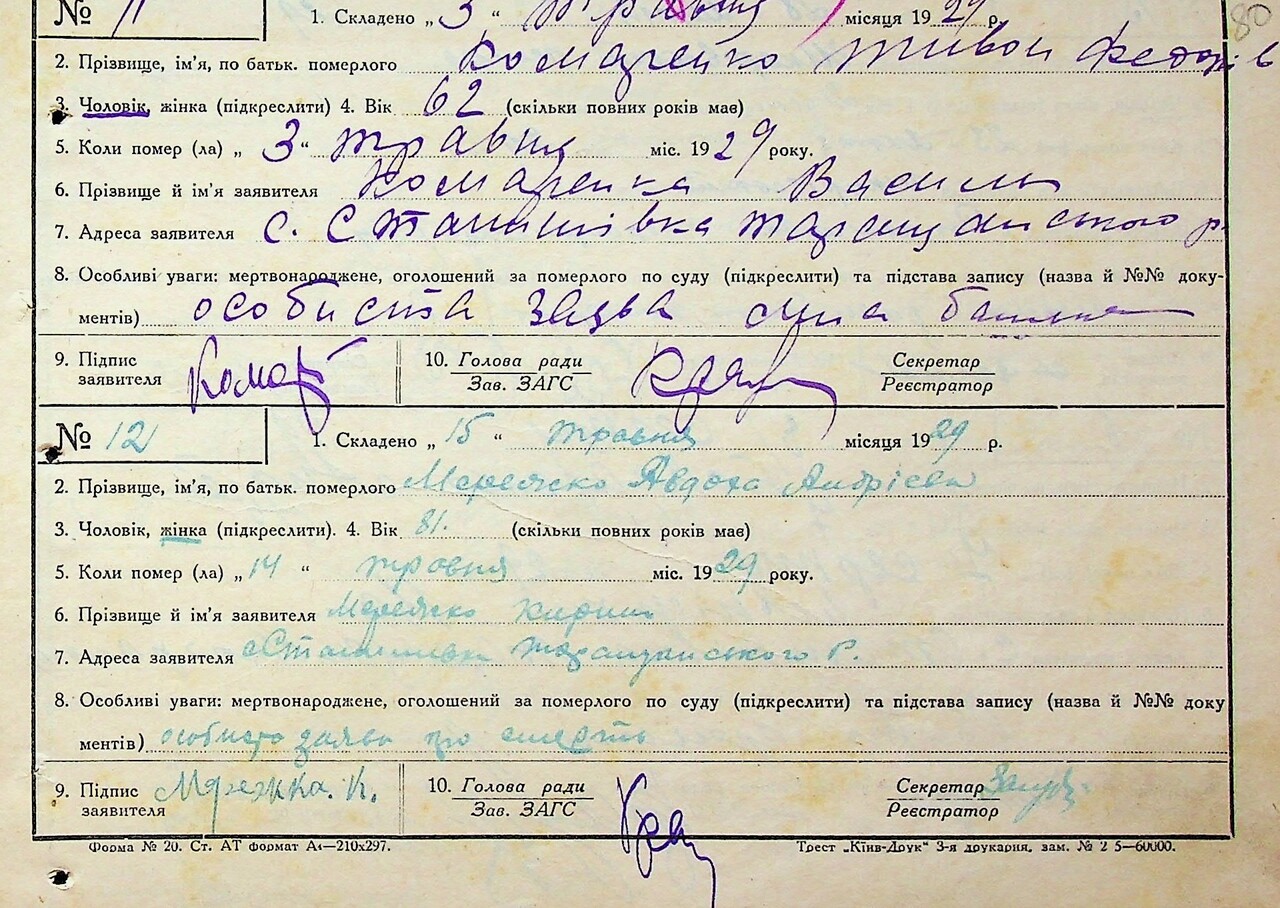 80
№ 11 1. Складено „ 3 “ травня місяця 1929 р.
2. Прізвище, ім'я, по батьк. померлого Комаренко Федорів
3. Чоловік, жінка (підкреслити) 4. Вік 62 (скільки повних років має)
5. Коли помер (ла) „ 3 “ травня міс. 1929 року.
6. Прізвище й ім'я заявителя Комаренка Василь
7. Адреса заявителя с. Станишівка Таращанського р.
8. Особливі уваги: мертвонароджене, оголошений за померлого по суду (підкреслити) та підстава запису (назва й №№ доку-
ментів) особиста заява сина
9. Підпис заявителя Комар 10. Голова ради Секретар
Зав. ЗАГС Реєстратор
№ 12 1. Складено „ 15 “ травня місяця 1929 р.
2. Прізвище, ім'я, по батьк. померлого Авдоха Андрієва
3. Чоловік, жінка (підкреслити). 4. Вік 81. (скільки повних років має)
5. Коли помер (ла) „ 14 “ травня міс. 1929 року.
6. Прізвище й ім'я заявителя
7. Адреса заявителя с Станишивка Таращанського р.
8. Особливі уваги: мертвонароджене, оголошений за померлого по суду (підкреслити) та підстава запису (назва й №№ доку
ментів) особисто заява про смерть
9. Підпис заявителя К. 10. Голова ради Секретар
Зав. ЗАГС Реєстратор
Форма № 20. Ст. АТ формат А4—210х297. Трест „Київ-Друк“ 3-я друкарня, зам. № 2 5—60000.